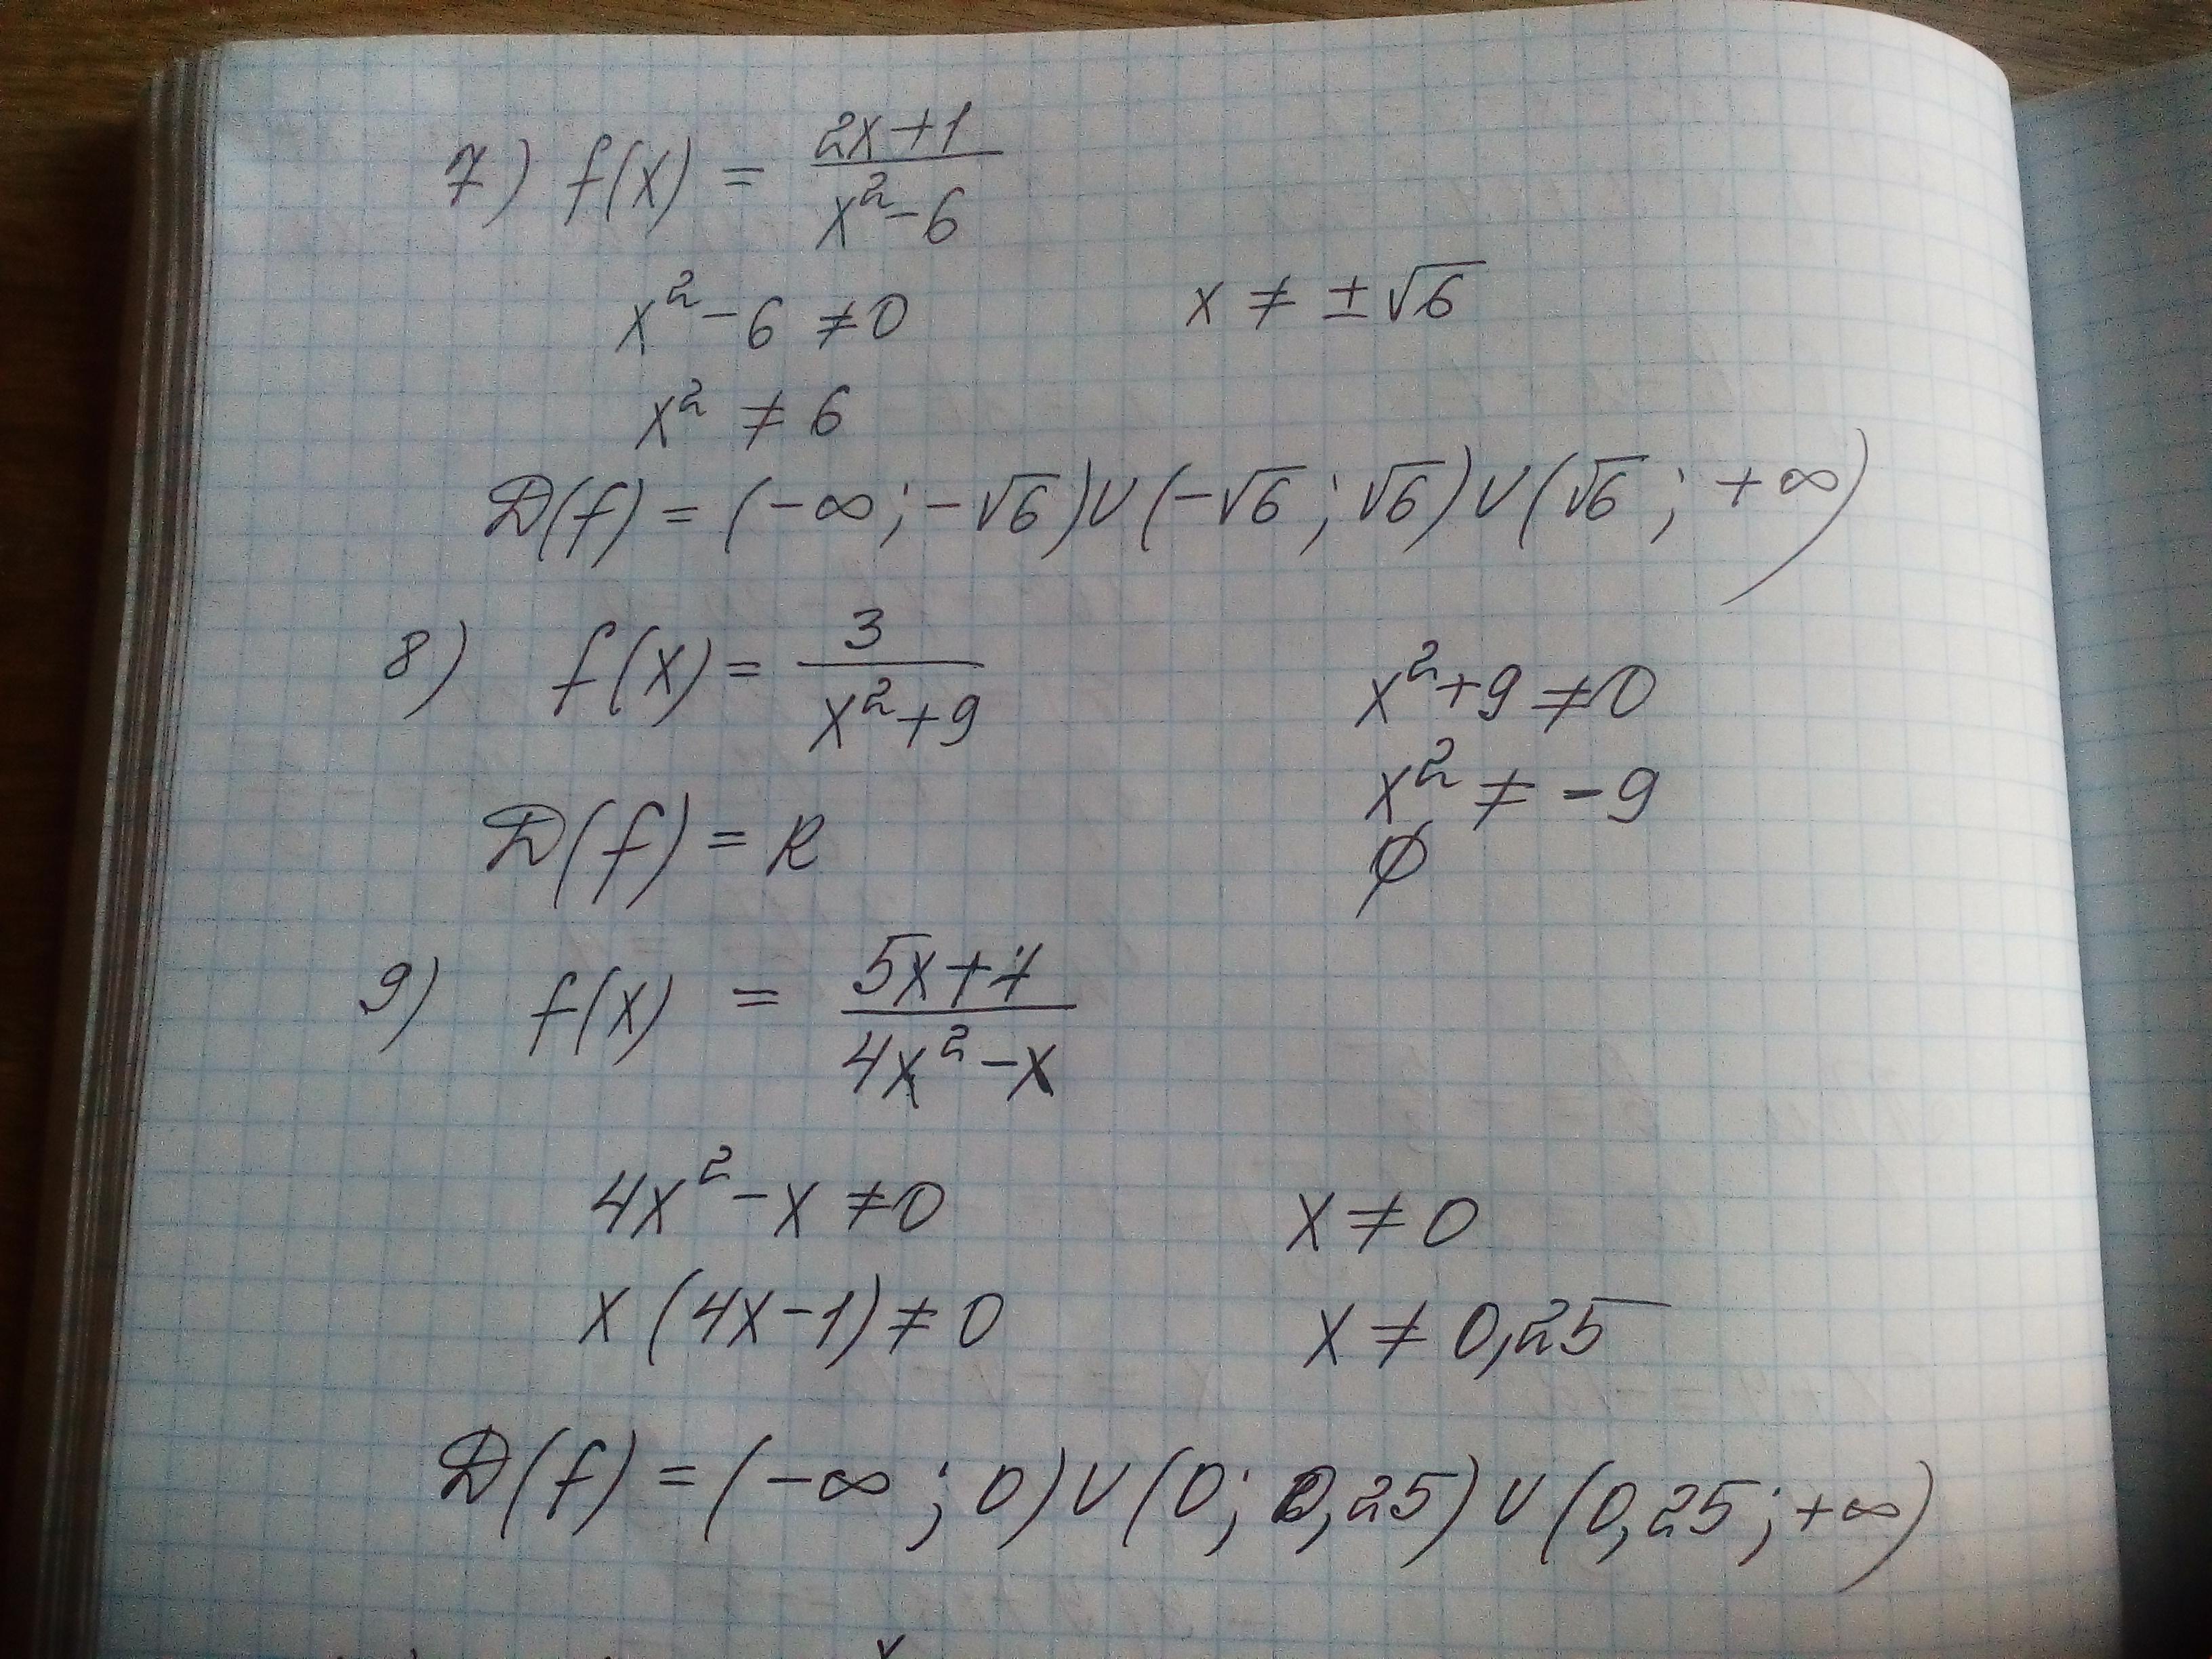 7) f(x) = (2x+1)/(x²-6)
x²-6 ≠ 0    x ≠ ±√6
x² ≠ 6
D(f) = (-∞; -√6)∪(-√6; √6)∪(√6; +∞)
8) f(x) = 3/(x²+9)    x²+9 ≠ 0
x² ≠ -9
D(f) = R    ∅
9) f(x) = (5x+1)/(4x²-x)
4x²-x ≠ 0    x ≠ 0
x(4x-1) ≠ 0    x ≠ 0,25
D(f) = (-∞; 0)∪(0; 0,25)∪(0,25; +∞)